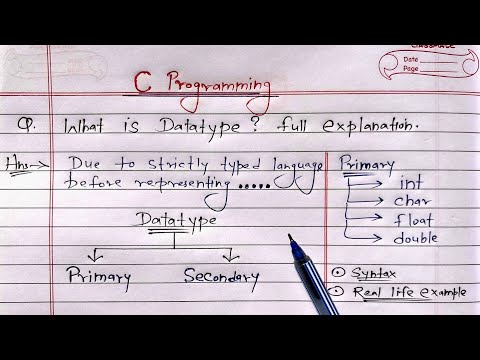 CLASSMATE
Date
Page
C Programming
Q. What is Datatype? full explanation.
Ans→ Due to strictly typed language
before representing.....
Datatype
Primary Secondary
Primary
int
char
float
double
Syntax
Real life example